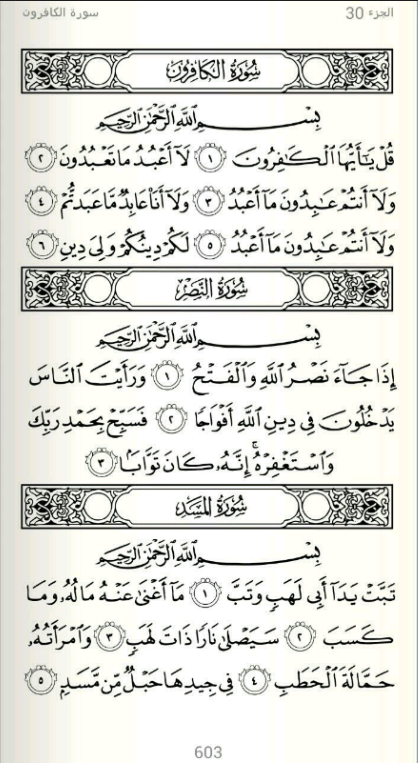 الجزء 30
سورة الكافرون
سُورَةُ الكَافِرُونَ
بِسْمِ ٱللَّهِ ٱلرَّحْمَٰنِ ٱلرَّحِيمِ
قُلْ يَٰٓأَيُّهَا ٱلْكَٰفِرُونَ ١ لَآ أَعْبُدُ مَا تَعْبُدُونَ ٢
وَلَآ أَنتُمْ عَٰبِدُونَ مَآ أَعْبُدُ ٣ وَلَآ أَنَا۠ عَابِدٌ مَّا عَبَدتُّمْ ٤
وَلَآ أَنتُمْ عَٰبِدُونَ مَآ أَعْبُدُ ٥ لَكُمْ دِينُكُمْ وَلِيَ دِينِ ٦
سُورَةُ النَّصْرِ
بِسْمِ ٱللَّهِ ٱلرَّحْمَٰنِ ٱلرَّحِيمِ
إِذَا جَآءَ نَصْرُ ٱللَّهِ وَٱلْفَتْحُ ١ وَرَأَيْتَ ٱلنَّاسَ
يَدْخُلُونَ فِي دِينِ ٱللَّهِ أَفْوَاجًا ٢ فَسَبِّحْ بِحَمْدِ رَبِّكَ
وَٱسْتَغْفِرْهُ ۚ إِنَّهُۥ كَانَ تَوَّابًۢا ٣
سُورَةُ المَسَدِ
بِسْمِ ٱللَّهِ ٱلرَّحْمَٰنِ ٱلرَّحِيمِ
تَبَّتْ يَدَآ أَبِي لَهَبٍ وَتَبَّ ١ مَآ أَغْنَىٰ عَنْهُ مَالُهُۥ وَمَا
كَسَبَ ٢ سَيَصْلَىٰ نَارًا ذَاتَ لَهَبٍ ٣ وَٱمْرَأَتُهُۥ
حَمَّالَةَ ٱلْحَطَبِ ٤ فِي جِيدِهَا حَبْلٌ مِّن مَّسَدٍۭ ٥
603